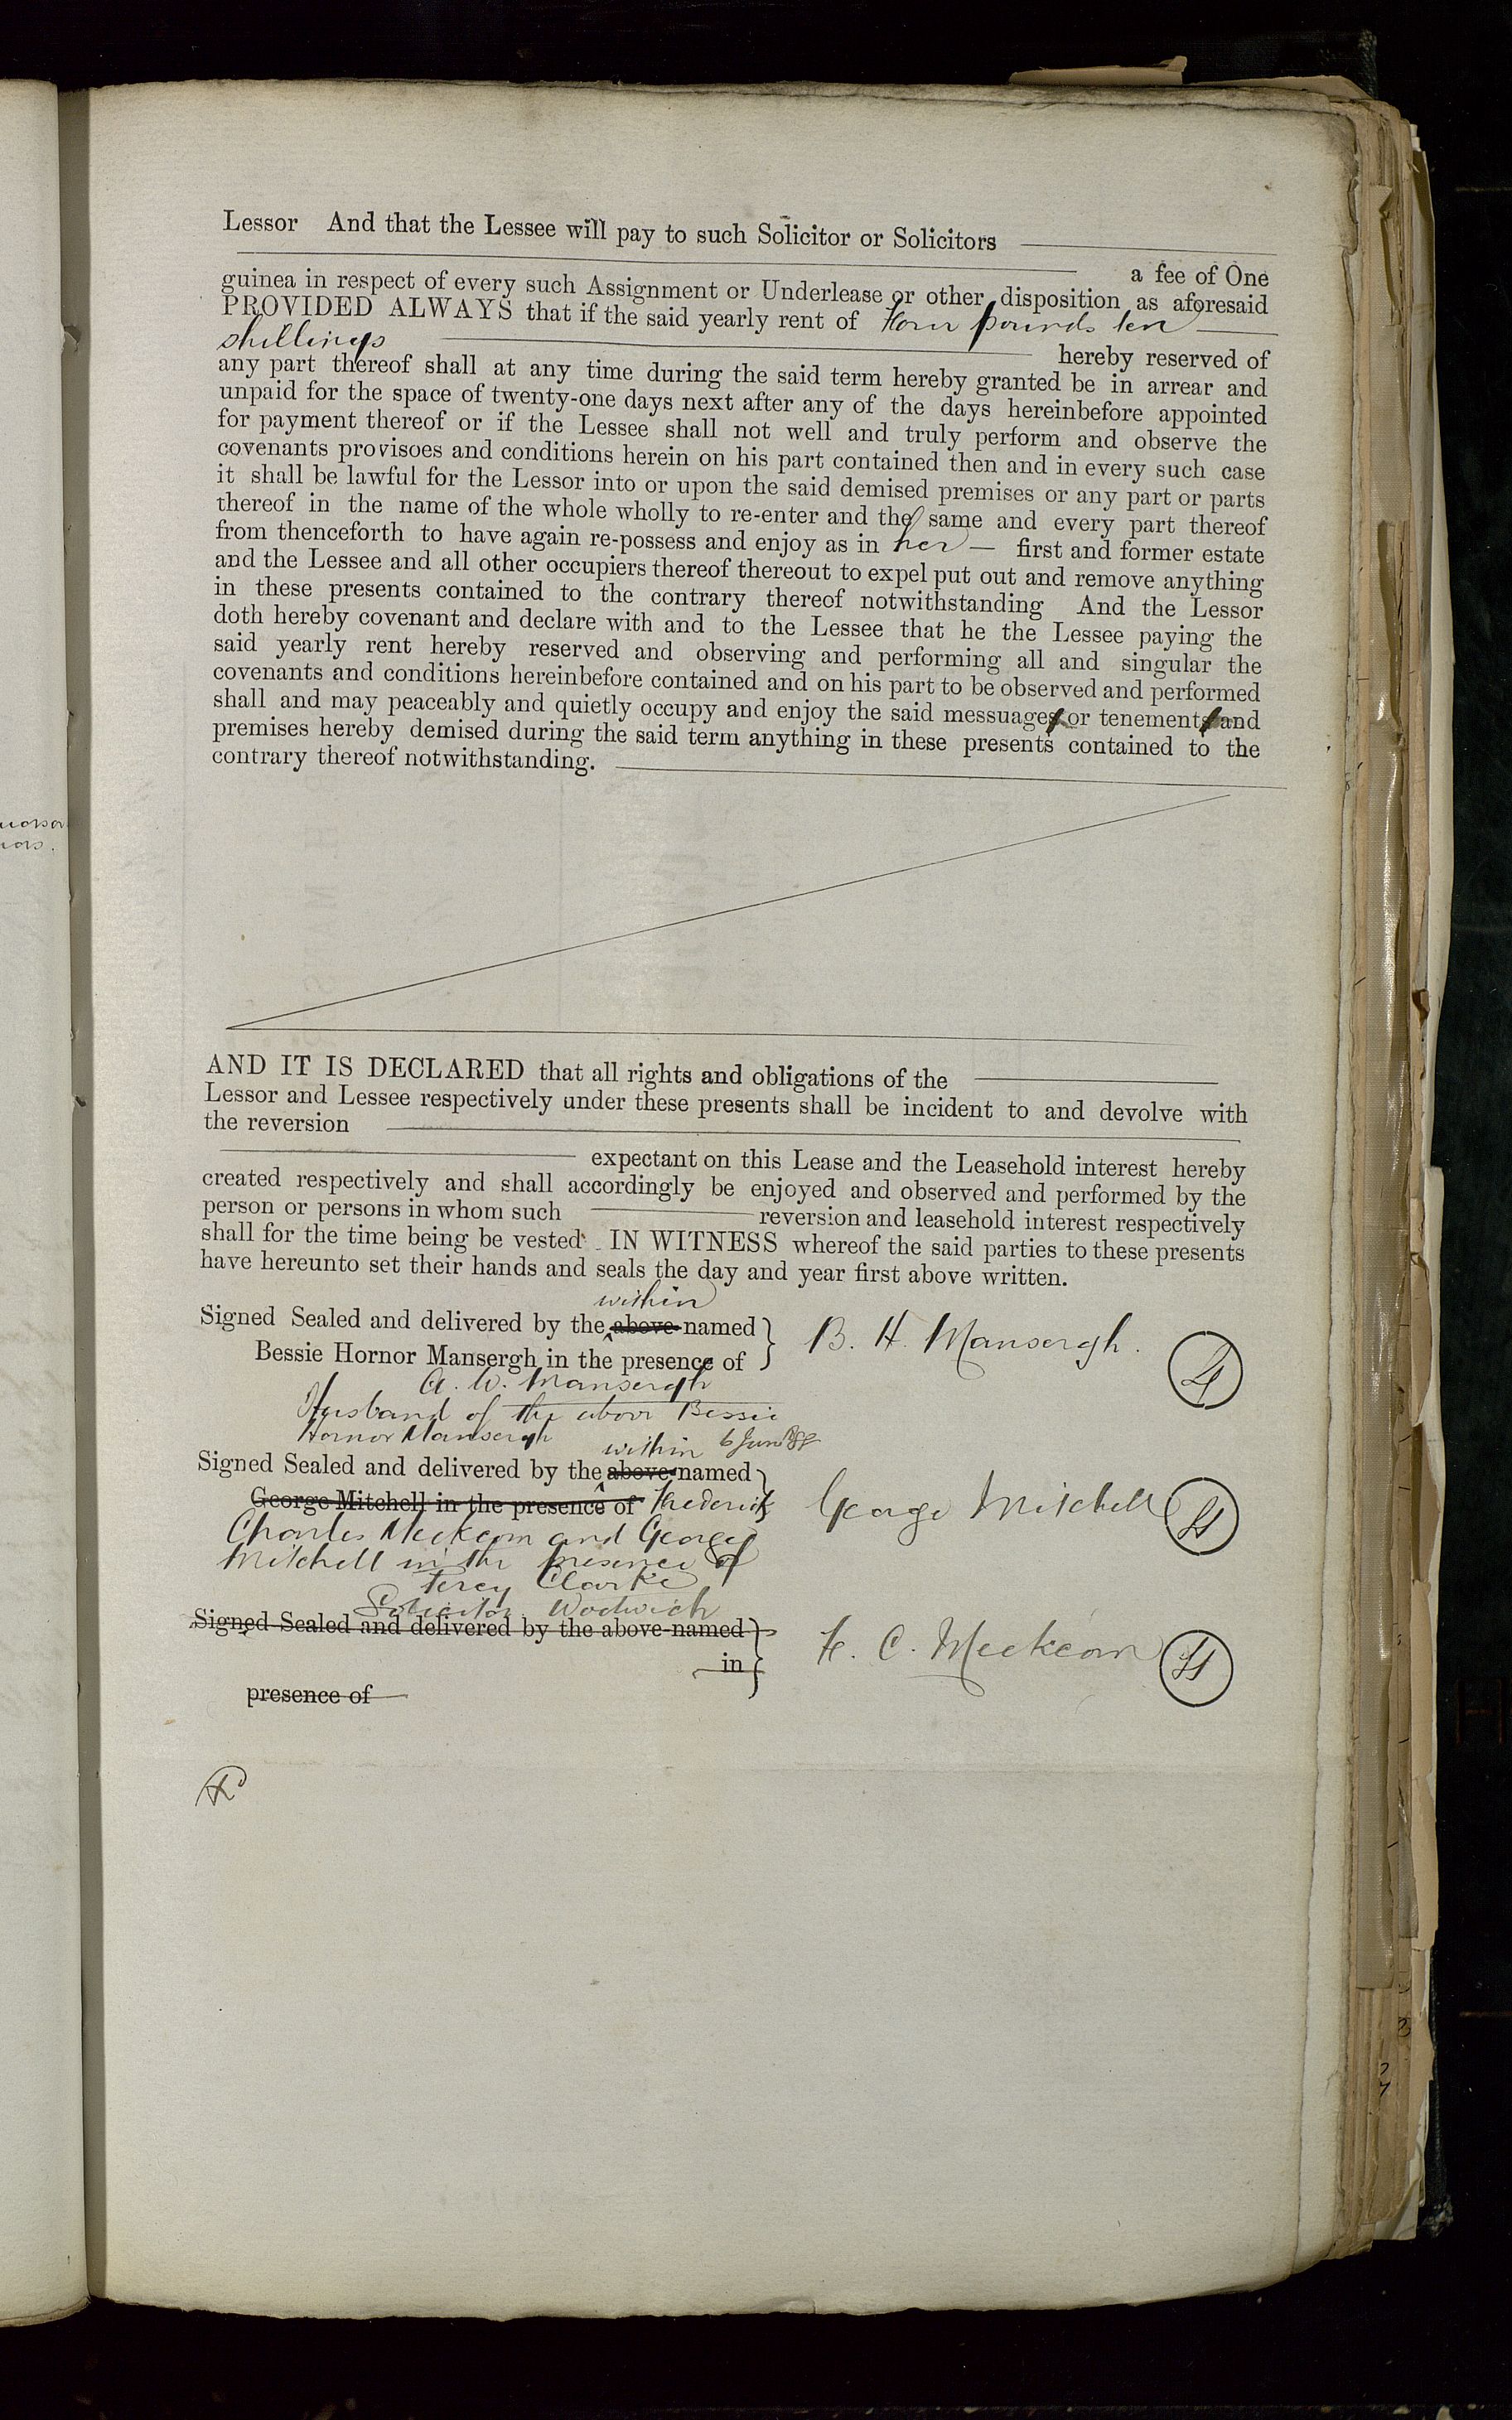 Lessor And that the Lessee will pay to such Solicitor or Solicitors
a fee of One
guinea in respect of every such Assignment or Underlease or other disposition as aforesaid
PROVIDED ALWAYS that if the said yearly rent of Four pounds ten
shillings hereby reserved of
any part thereof shall at any time during the said term hereby granted be in arrear and
unpaid for the space of twenty-one days next after any of the days hereinbefore appointed
for payment thereof or if the Lessee shall not well and truly perform and observe the
covenants provisoes and conditions herein on his part contained then and in every such case
it shall be lawful for the Lessor into or upon the said demised premises or any part or parts
thereof in the name of the whole wholly to re-enter and the same and every part thereof
from thenceforth to have again re-possess and enjoy as in her first and former estate
and the Lessee and all other occupiers thereof thereout to expel put out and remove anything
in these presents contained to the contrary thereof notwithstanding And the Lessor
doth hereby covenant and declare with and to the Lessee that he the Lessee paying the
said yearly rent hereby reserved and observing and performing all and singular the
covenants and conditions hereinbefore contained and on his part to be observed and performed
shall and may peaceably and quietly occupy and enjoy the said messuages or tenements and
premises hereby demised during the said term anything in these presents contained to the
contrary thereof notwithstanding.
AND IT IS DECLARED that all rights and obligations of the
Lessor and Lessee respectively under these presents shall be incident to and devolve with
the reversion
expectant on this Lease and the Leasehold interest hereby
created respectively and shall accordingly be enjoyed and observed and performed by the
person or persons in whom such reversion and leasehold interest respectively
shall for the time being be vested IN WITNESS whereof the said parties to these presents
have hereunto set their hands and seals the day and year first above written.
within
Signed Sealed and delivered by the above-named
Bessie Hornor Mansergh in the presence of
B. H. Mansergh.
A. W. Mansergh
Husband of the above Bessie
Hornor Mansergh
within 6 June
Signed Sealed and delivered by the above-named
George Mitchell in the presence of Frederick
George Mitchell
Charles Meekcom and George
Mitchell in the presence of
Percy Clarke
Solicitor Woolwich
Signed Sealed and delivered by the above-named
in
F. C. Meekcom
presence of